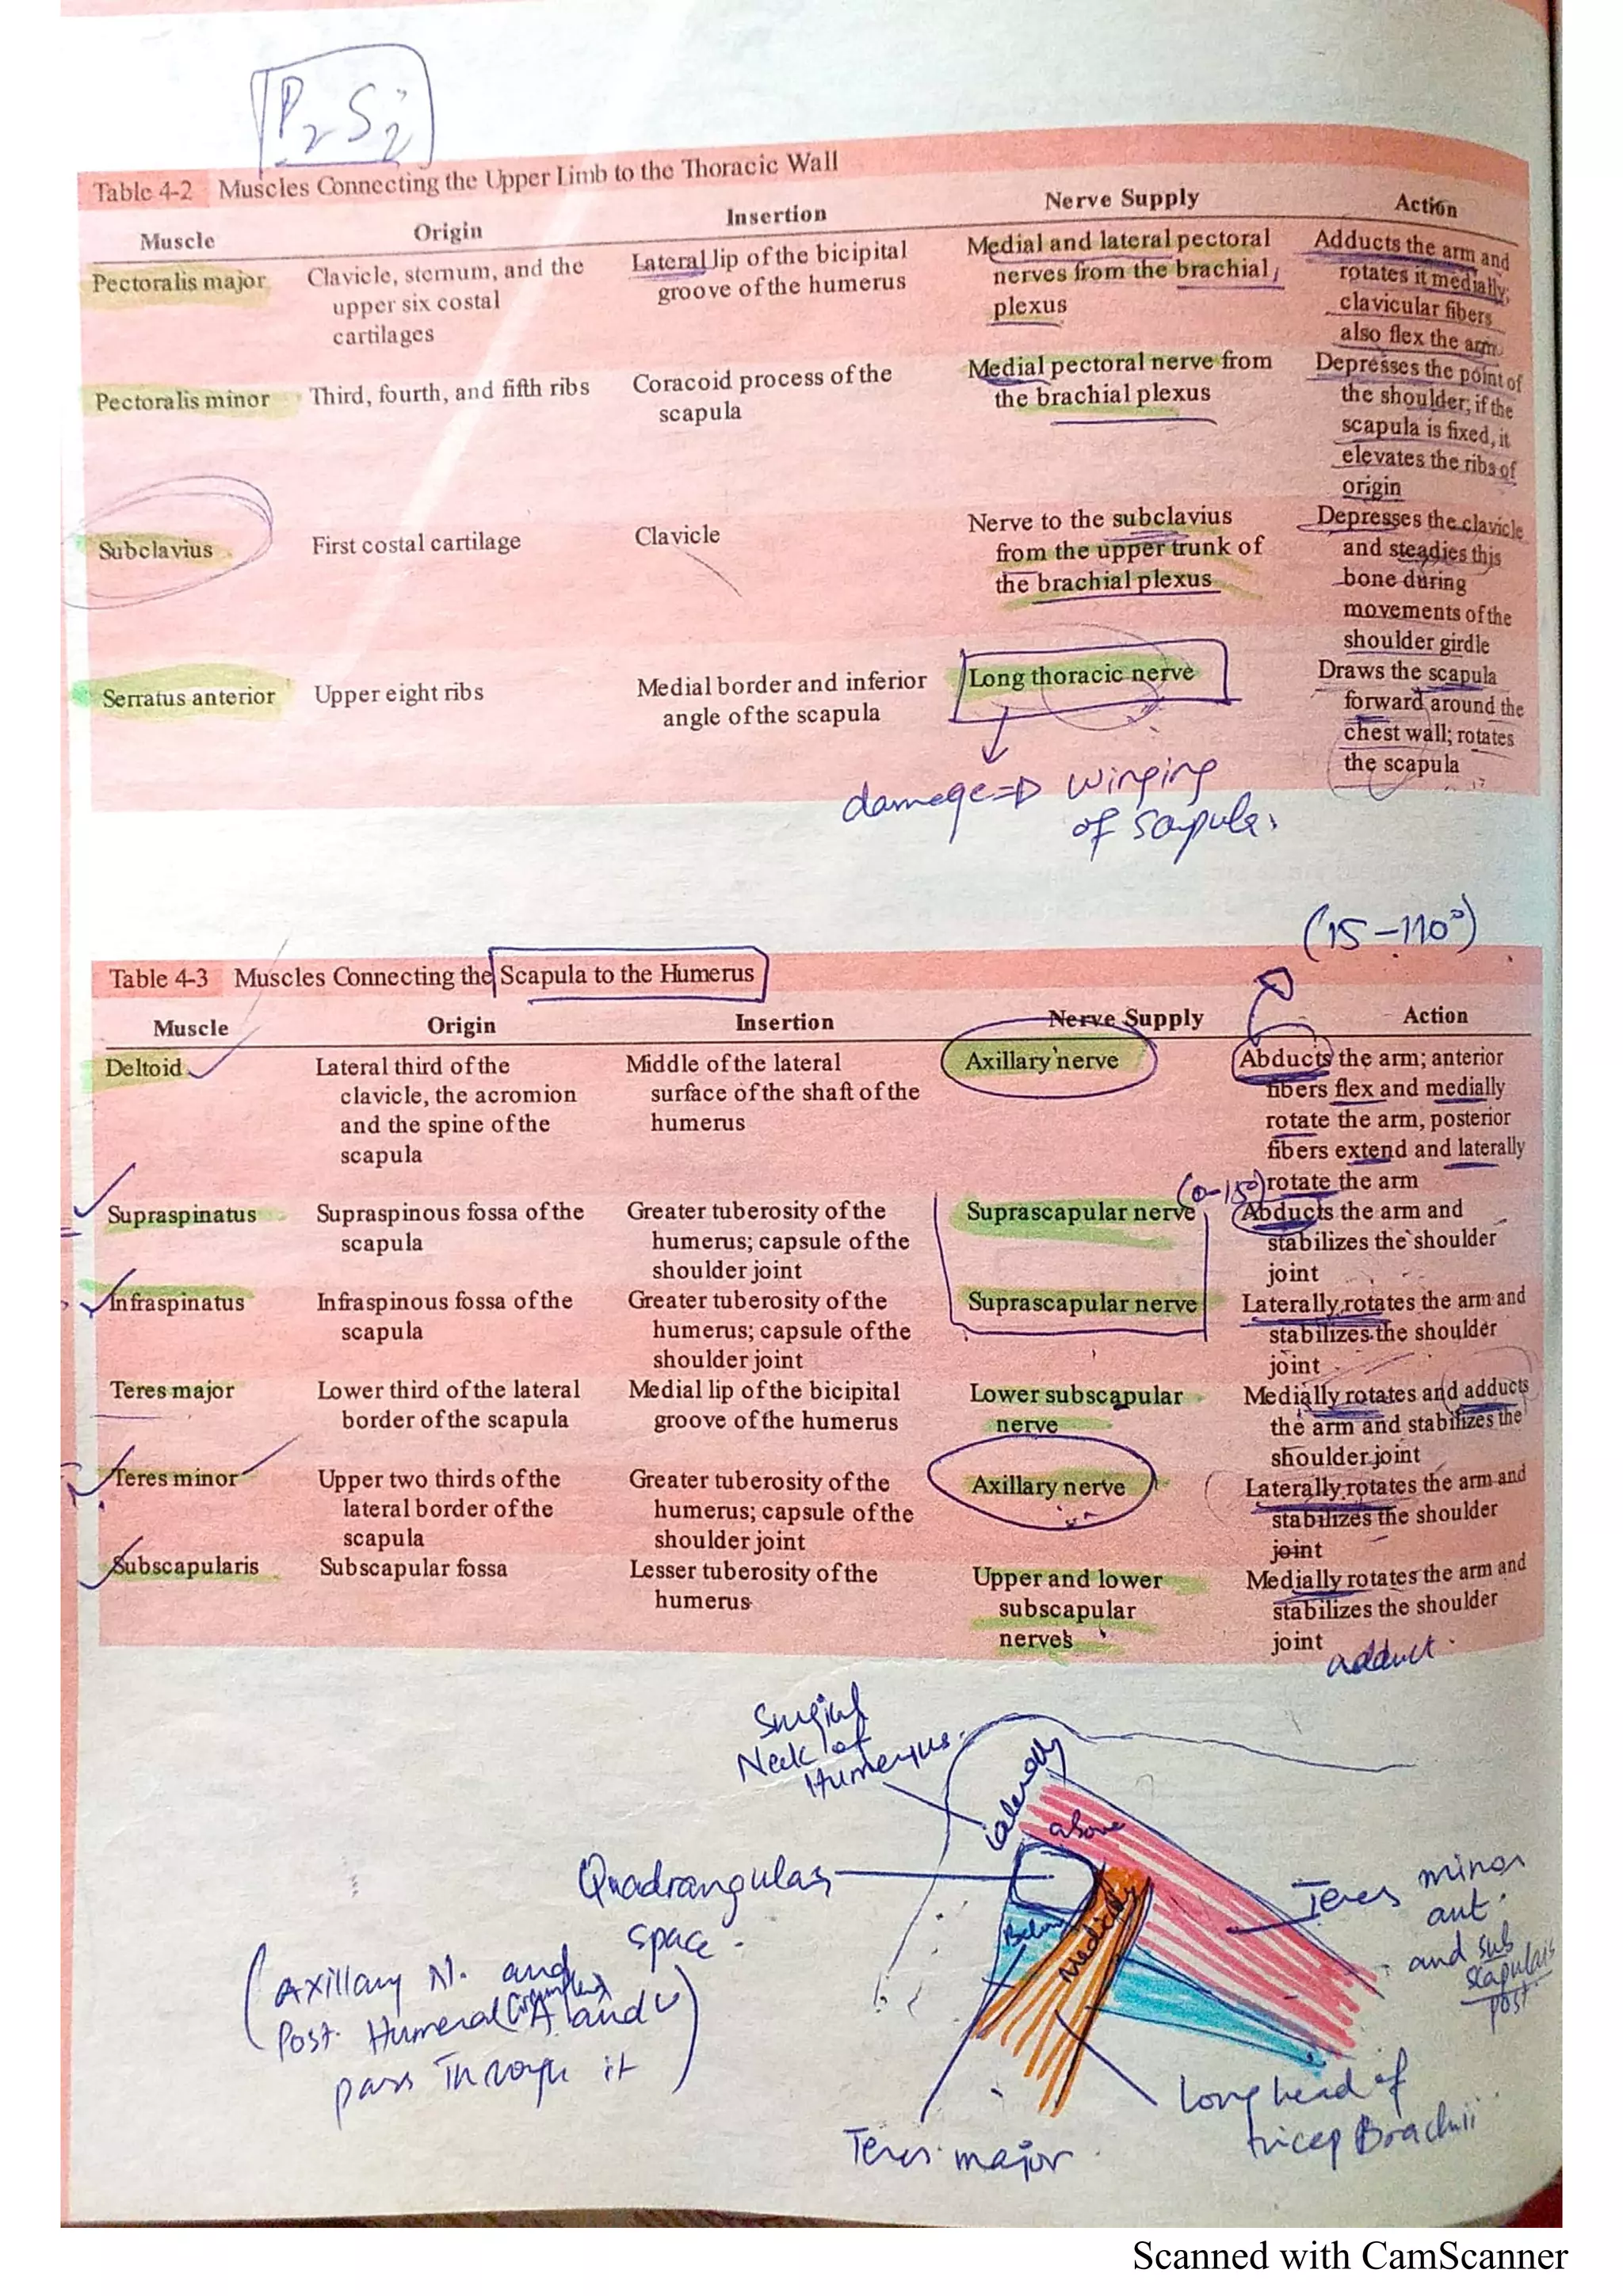 P2 S2
Table 4-2 Muscles Connecting the Upper Limb to the Thoracic Wall
Muscle Origin Insertion Nerve Supply Action
Pectoralis major Clavicle, sternum, and the upper six costal cartilages Lateral lip of the bicipital groove of the humerus Medial and lateral pectoral nerves from the brachial plexus Adducts the arm and rotates it medially; clavicular fibers also flex the arm
Pectoralis minor Third, fourth, and fifth ribs Coracoid process of the scapula Medial pectoral nerve from the brachial plexus Depresses the point of the shoulder; if the scapula is fixed, it elevates the ribs of origin
Subclavius First costal cartilage Clavicle Nerve to the subclavius from the upper trunk of the brachial plexus Depresses the clavicle and steadies this bone during movements of the shoulder girdle
Serratus anterior Upper eight ribs Medial border and inferior angle of the scapula Long thoracic nerve Draws the scapula forward around the chest wall; rotates the scapula
damage => winging
of scapula.
(15-110°)
Table 4-3 Muscles Connecting the Scapula to the Humerus
Muscle Origin Insertion Nerve Supply Action
Deltoid Lateral third of the clavicle, the acromion and the spine of the scapula Middle of the lateral surface of the shaft of the humerus Axillary nerve Abducts the arm; anterior fibers flex and medially rotate the arm, posterior fibers extend and laterally rotate the arm
(0-15°)
Supraspinatus Supraspinous fossa of the scapula Greater tuberosity of the humerus; capsule of the shoulder joint Suprascapular nerve Abducts the arm and stabilizes the shoulder joint
Infraspinatus Infraspinous fossa of the scapula Greater tuberosity of the humerus; capsule of the shoulder joint Suprascapular nerve Laterally rotates the arm and stabilizes the shoulder joint
Teres major Lower third of the lateral border of the scapula Medial lip of the bicipital groove of the humerus Lower subscapular nerve Medially rotates and adducts the arm and stabilizes the shoulder joint
Teres minor Upper two thirds of the lateral border of the scapula Greater tuberosity of the humerus; capsule of the shoulder joint Axillary nerve Laterally rotates the arm and stabilizes the shoulder joint
Subscapularis Subscapular fossa Lesser tuberosity of the humerus Upper and lower subscapular nerves Medially rotates the arm and stabilizes the shoulder joint
adduct
Surgical
Neck of
Humerus.
laterally
above
Quadrangular
space.
Below
Medially
Teres minor
ant.
and sub
scapularis
post.
(Axillary N. and
Post. Humeral Circumflex A and V
pass Through it)
Teres major
Long head of
tricep Brachii
Scanned with CamScanner